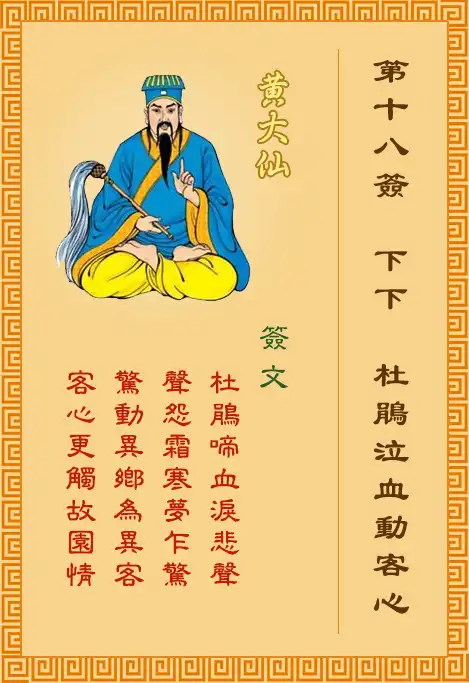 第十八簽 下下 杜鵑泣血動客心
黃大仙
簽文
杜鵑啼血淚悲聲
聲怨霜寒夢乍驚
驚動異鄉為異客
客心更觸故園情